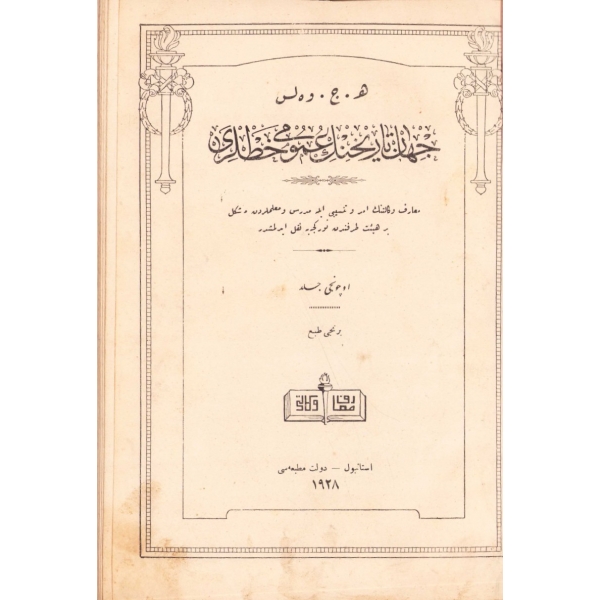 ه . ج . وەلس
جهان تاریخنك عمومی خطلری
معارف وكالتنك امر و تنسیبی ایله مدرس و معلملردن متشكل
بر هیئت طرفندن توركجه‌یه نقل ایدلمشدر
اوچونجی جلد
برنجی طبع
معارف وكالتی
استانبول — دولت مطبعه‌سی
۱۹۲۸